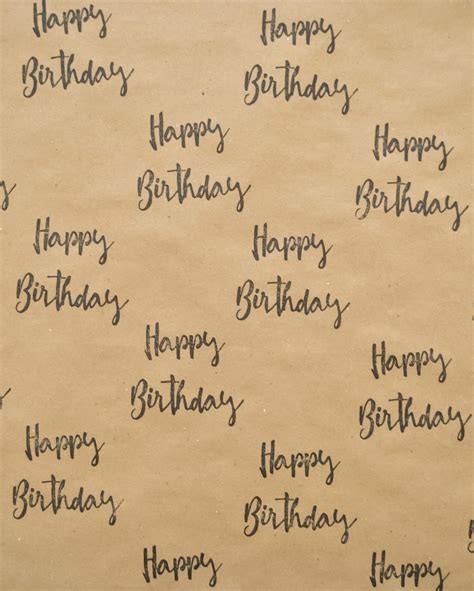 Happy
Birthday
Happy
Birthday
Happy
Birthday
Happy
Birthday
Happy
Birthday
Happy
Birthday
Happy
Birthday
Happy
Birthday
Happy
Birthday
Happy
Birthday
Happy
Happy